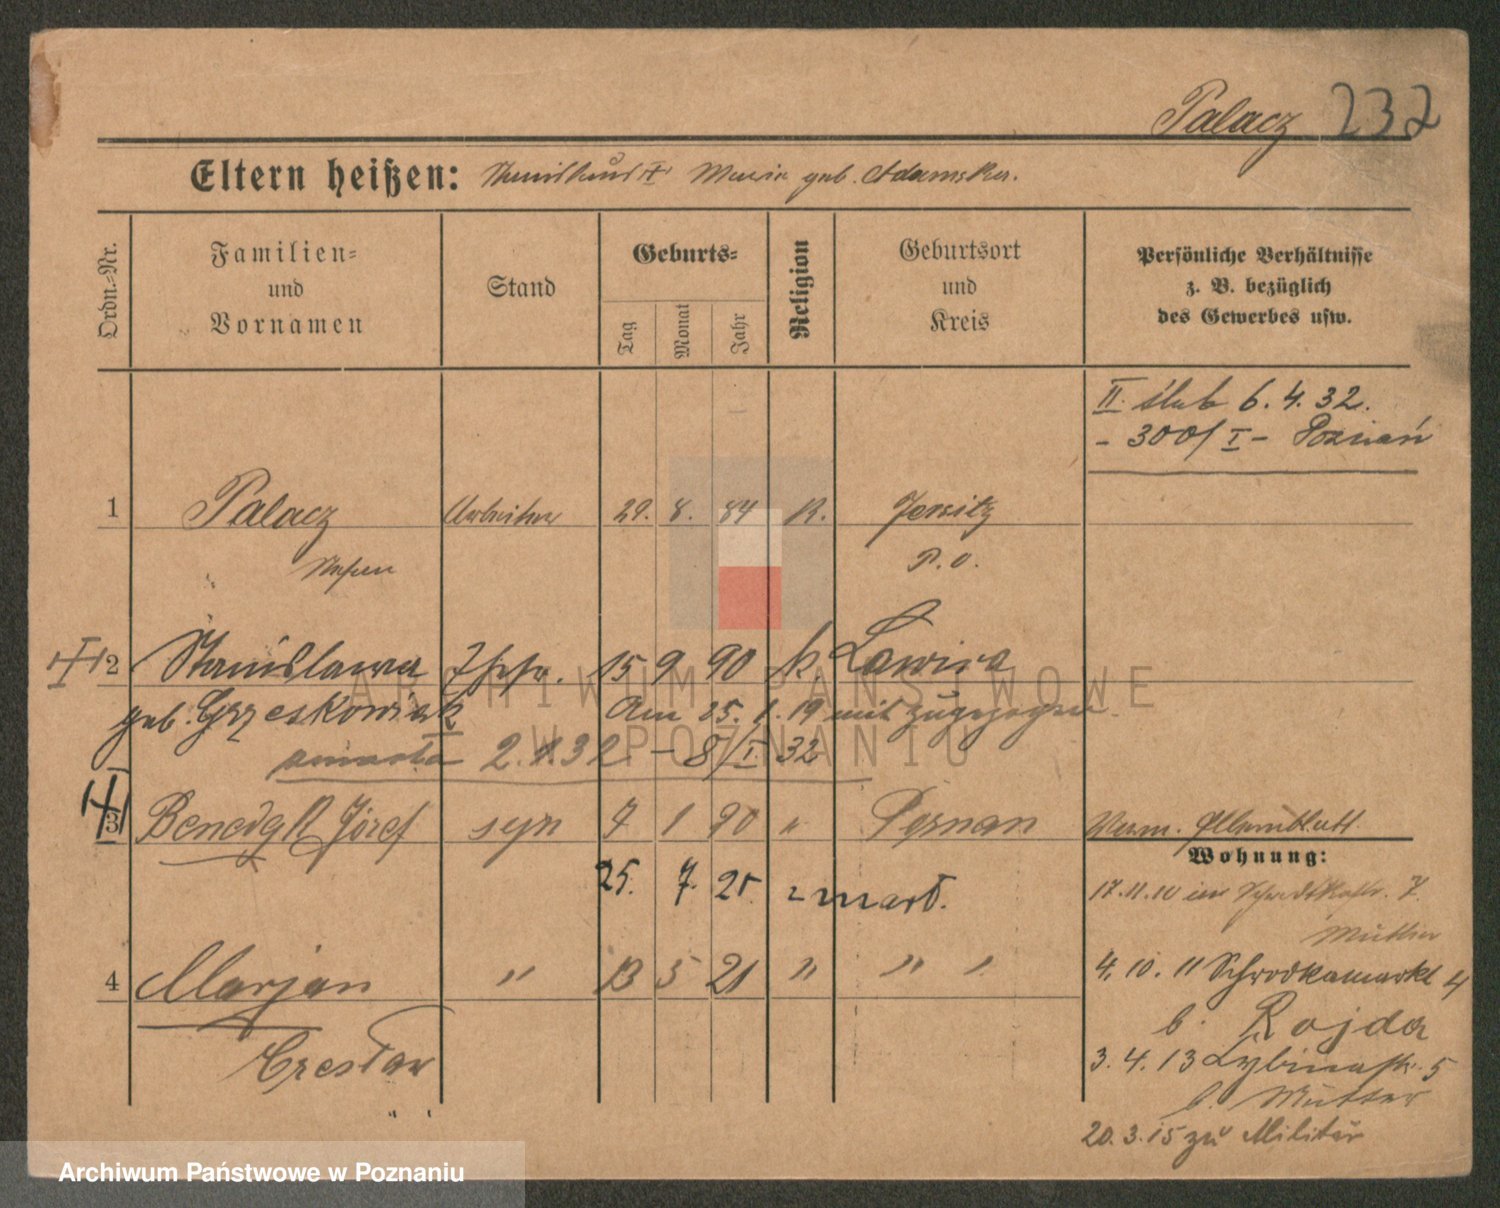 Palacz 232
Eltern heißen: Maria geb. Adamska.
Ordn.-Nr.
Familien-
und
Vornamen
Stand
Geburts-
Tag
Monat
Jahr
Religion
Geburtsort
und
Kreis
Persönliche Verhältnisse
z. B. bezüglich
des Gewerbes usw.
II. ślub 6. 4. 32.
- 300/I - Poznań
1 Palacz Arbeiter 29. 8. 84 R. Jersitz
P. O.
2 Stanisława 15 9 90 k. Ławica
geb. Grzeskowiak Am 15. 1. 19 mit zugezogen
zmarła 2. 1. 32 - 8/I 32
3 Benedykt Józef syn 7 1 20 " Posnan
25. 7. 25. zmarł.
Wohnung:
17. 11. 10 7.
Mutter
4 Marjan " 13 5 21 " " "
Czesław
4. 10. 11 Schrodkamarkt 4
b. Rojda
3. 4. 13 5
b. Mutter
20. 3. 15 zu Militär
ARCHIWUM PAŃSTWOWE
W POZNANIU
Archiwum Państwowe w Poznaniu